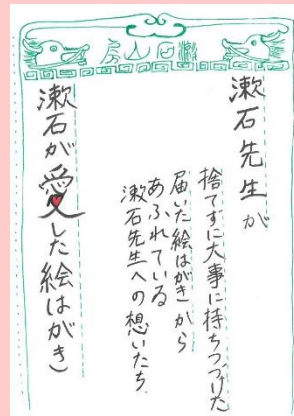 漱石山房
漱石先生が
捨てずに大事に持ちつづけた
届いた絵はがきから
あふれている
漱石先生への想いたち
漱石が愛した絵はがき